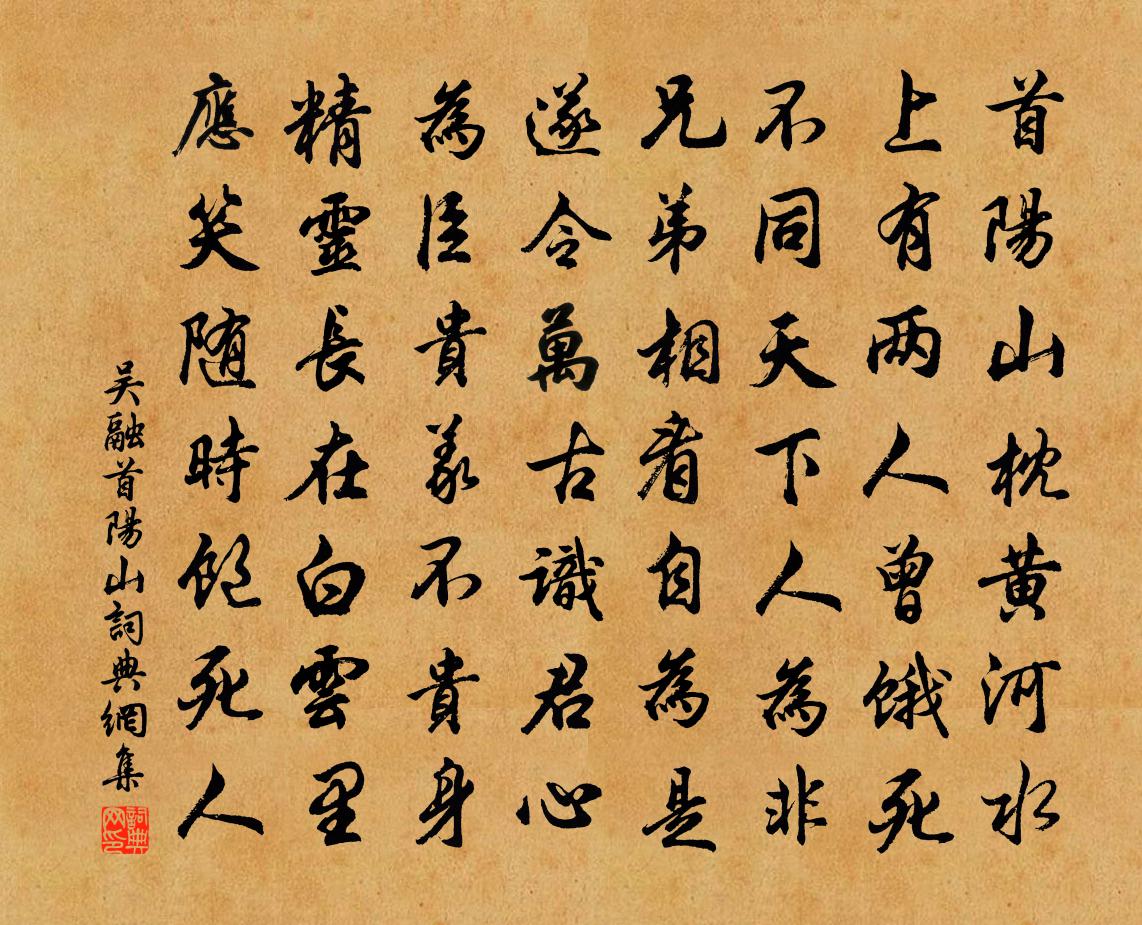 首陽山枕黄河水
上有两人曾餓死
不同天下人為非
兄弟相看自為是
遂令萬古識君心
為臣貴義不貴身
精靈長在白雲里
應笑随時飽死人
吴融首陽山詞典網集
詞典网印